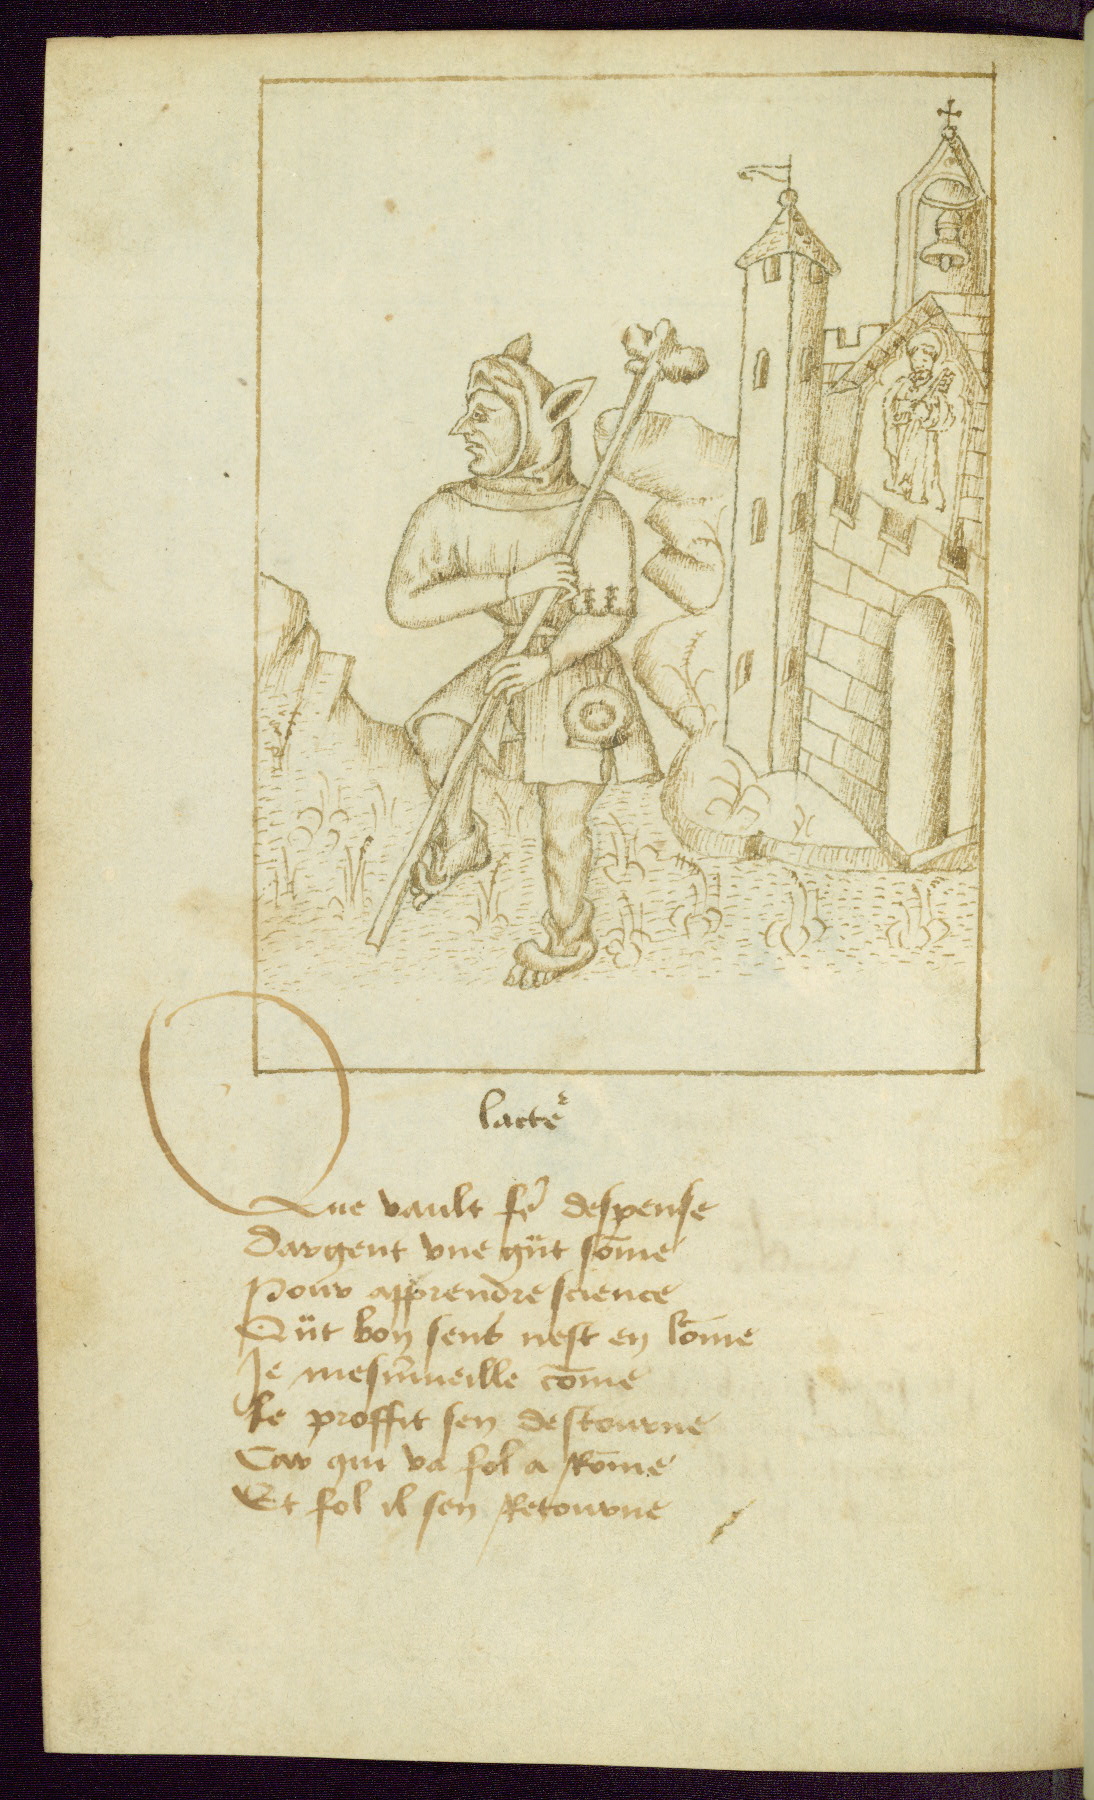 lacteʳ
Que vault fẽ despense
Dargent vne gũt sõme
Pour apprendre science
Qũt bon sens nest en lõme
Je mesmueille cõme
Le proffit sen destourne
Car qui va fol a Rõme
Et fol il sen Retourne